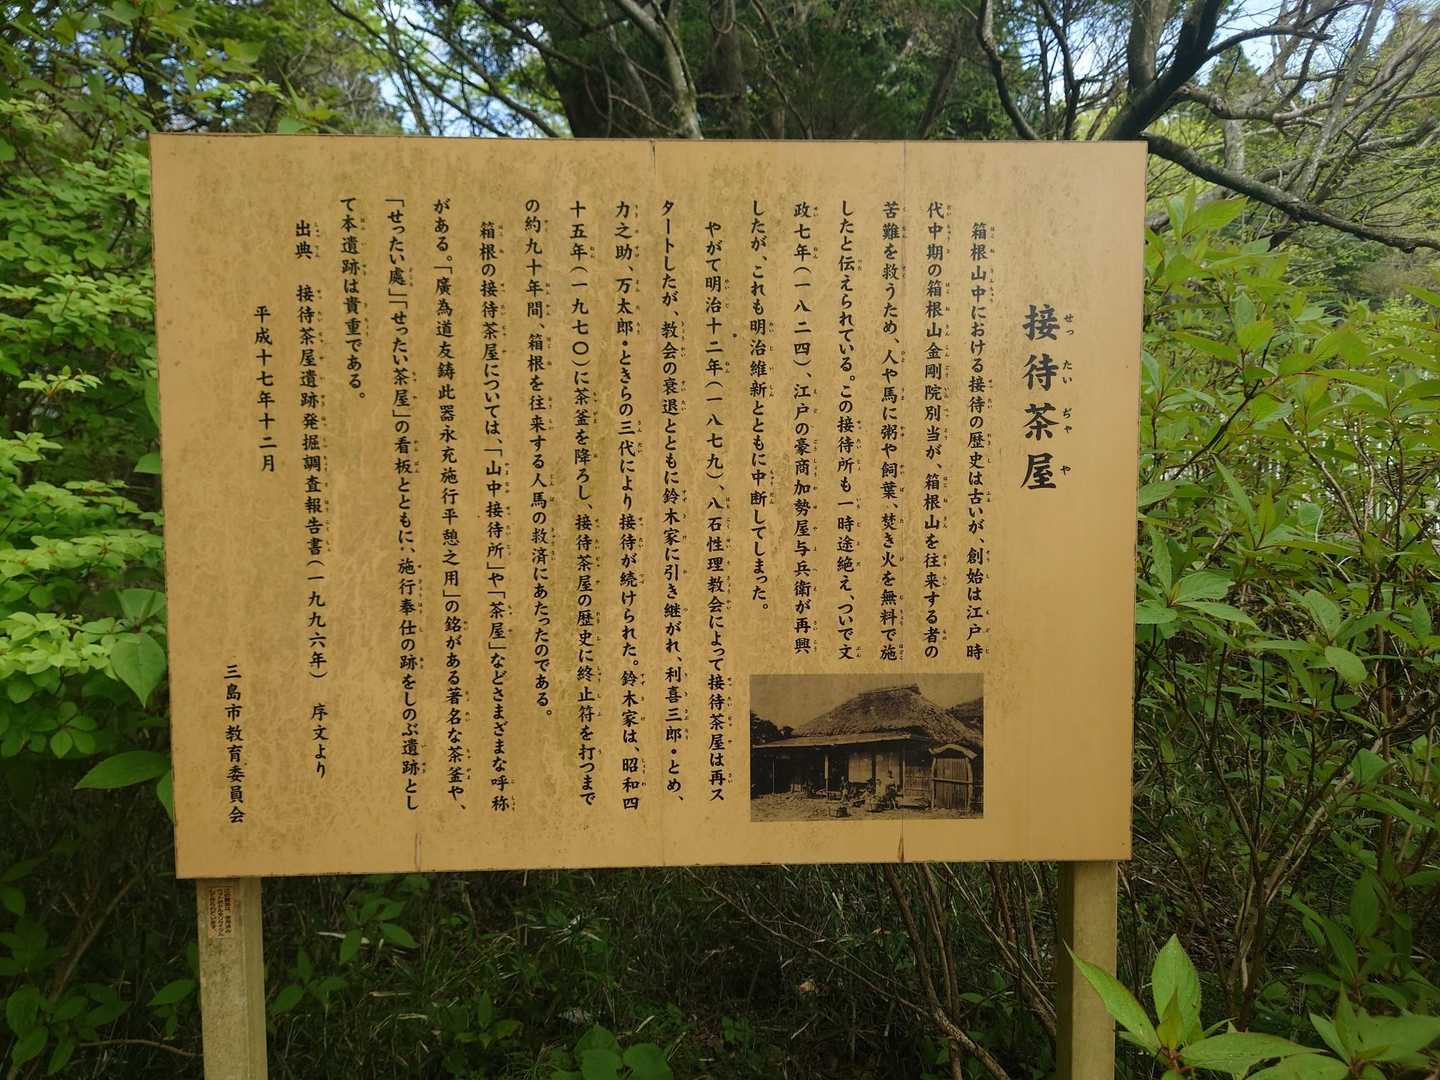 接待茶屋
箱根山中における接待の歴史は古いが、創始は江戸時
代中期の箱根山金剛院別当が、箱根山を往来する者の
苦難を救うため、人や馬に粥や飼葉、焚き火を無料で施
したと伝えられている。この接待所も一時途絶え、ついで文
政七年（一八二四）、江戸の豪商加勢屋与兵衛が再興
したが、これも明治維新とともに中断してしまった。
やがて明治十二年（一八七九）、八石性理教会によって接待茶屋は再ス
タートしたが、教会の衰退とともに鈴木家に引き継がれ、利喜三郎・とめ、
力之助、万太郎・ときらの三代により接待が続けられた。鈴木家は、昭和四
十五年（一九七〇）に茶釜を降ろし、接待茶屋の歴史に終止符を打つまで
の約九十年間、箱根を往来する人馬の救済にあたったのである。
箱根の接待茶屋については、「山中接待所」や「茶屋」などさまざまな呼称
がある。「廣為道友鋳此器永充施行平憩之用」の銘がある著名な茶釜や、
「せったい處」「せったい茶屋」の看板とともに、施行奉仕の跡をしのぶ遺跡とし
て本遺跡は貴重である。
出典　接待茶屋遺跡発掘調査報告書（一九九六年）　序文より
平成十七年十二月
三島市教育委員会